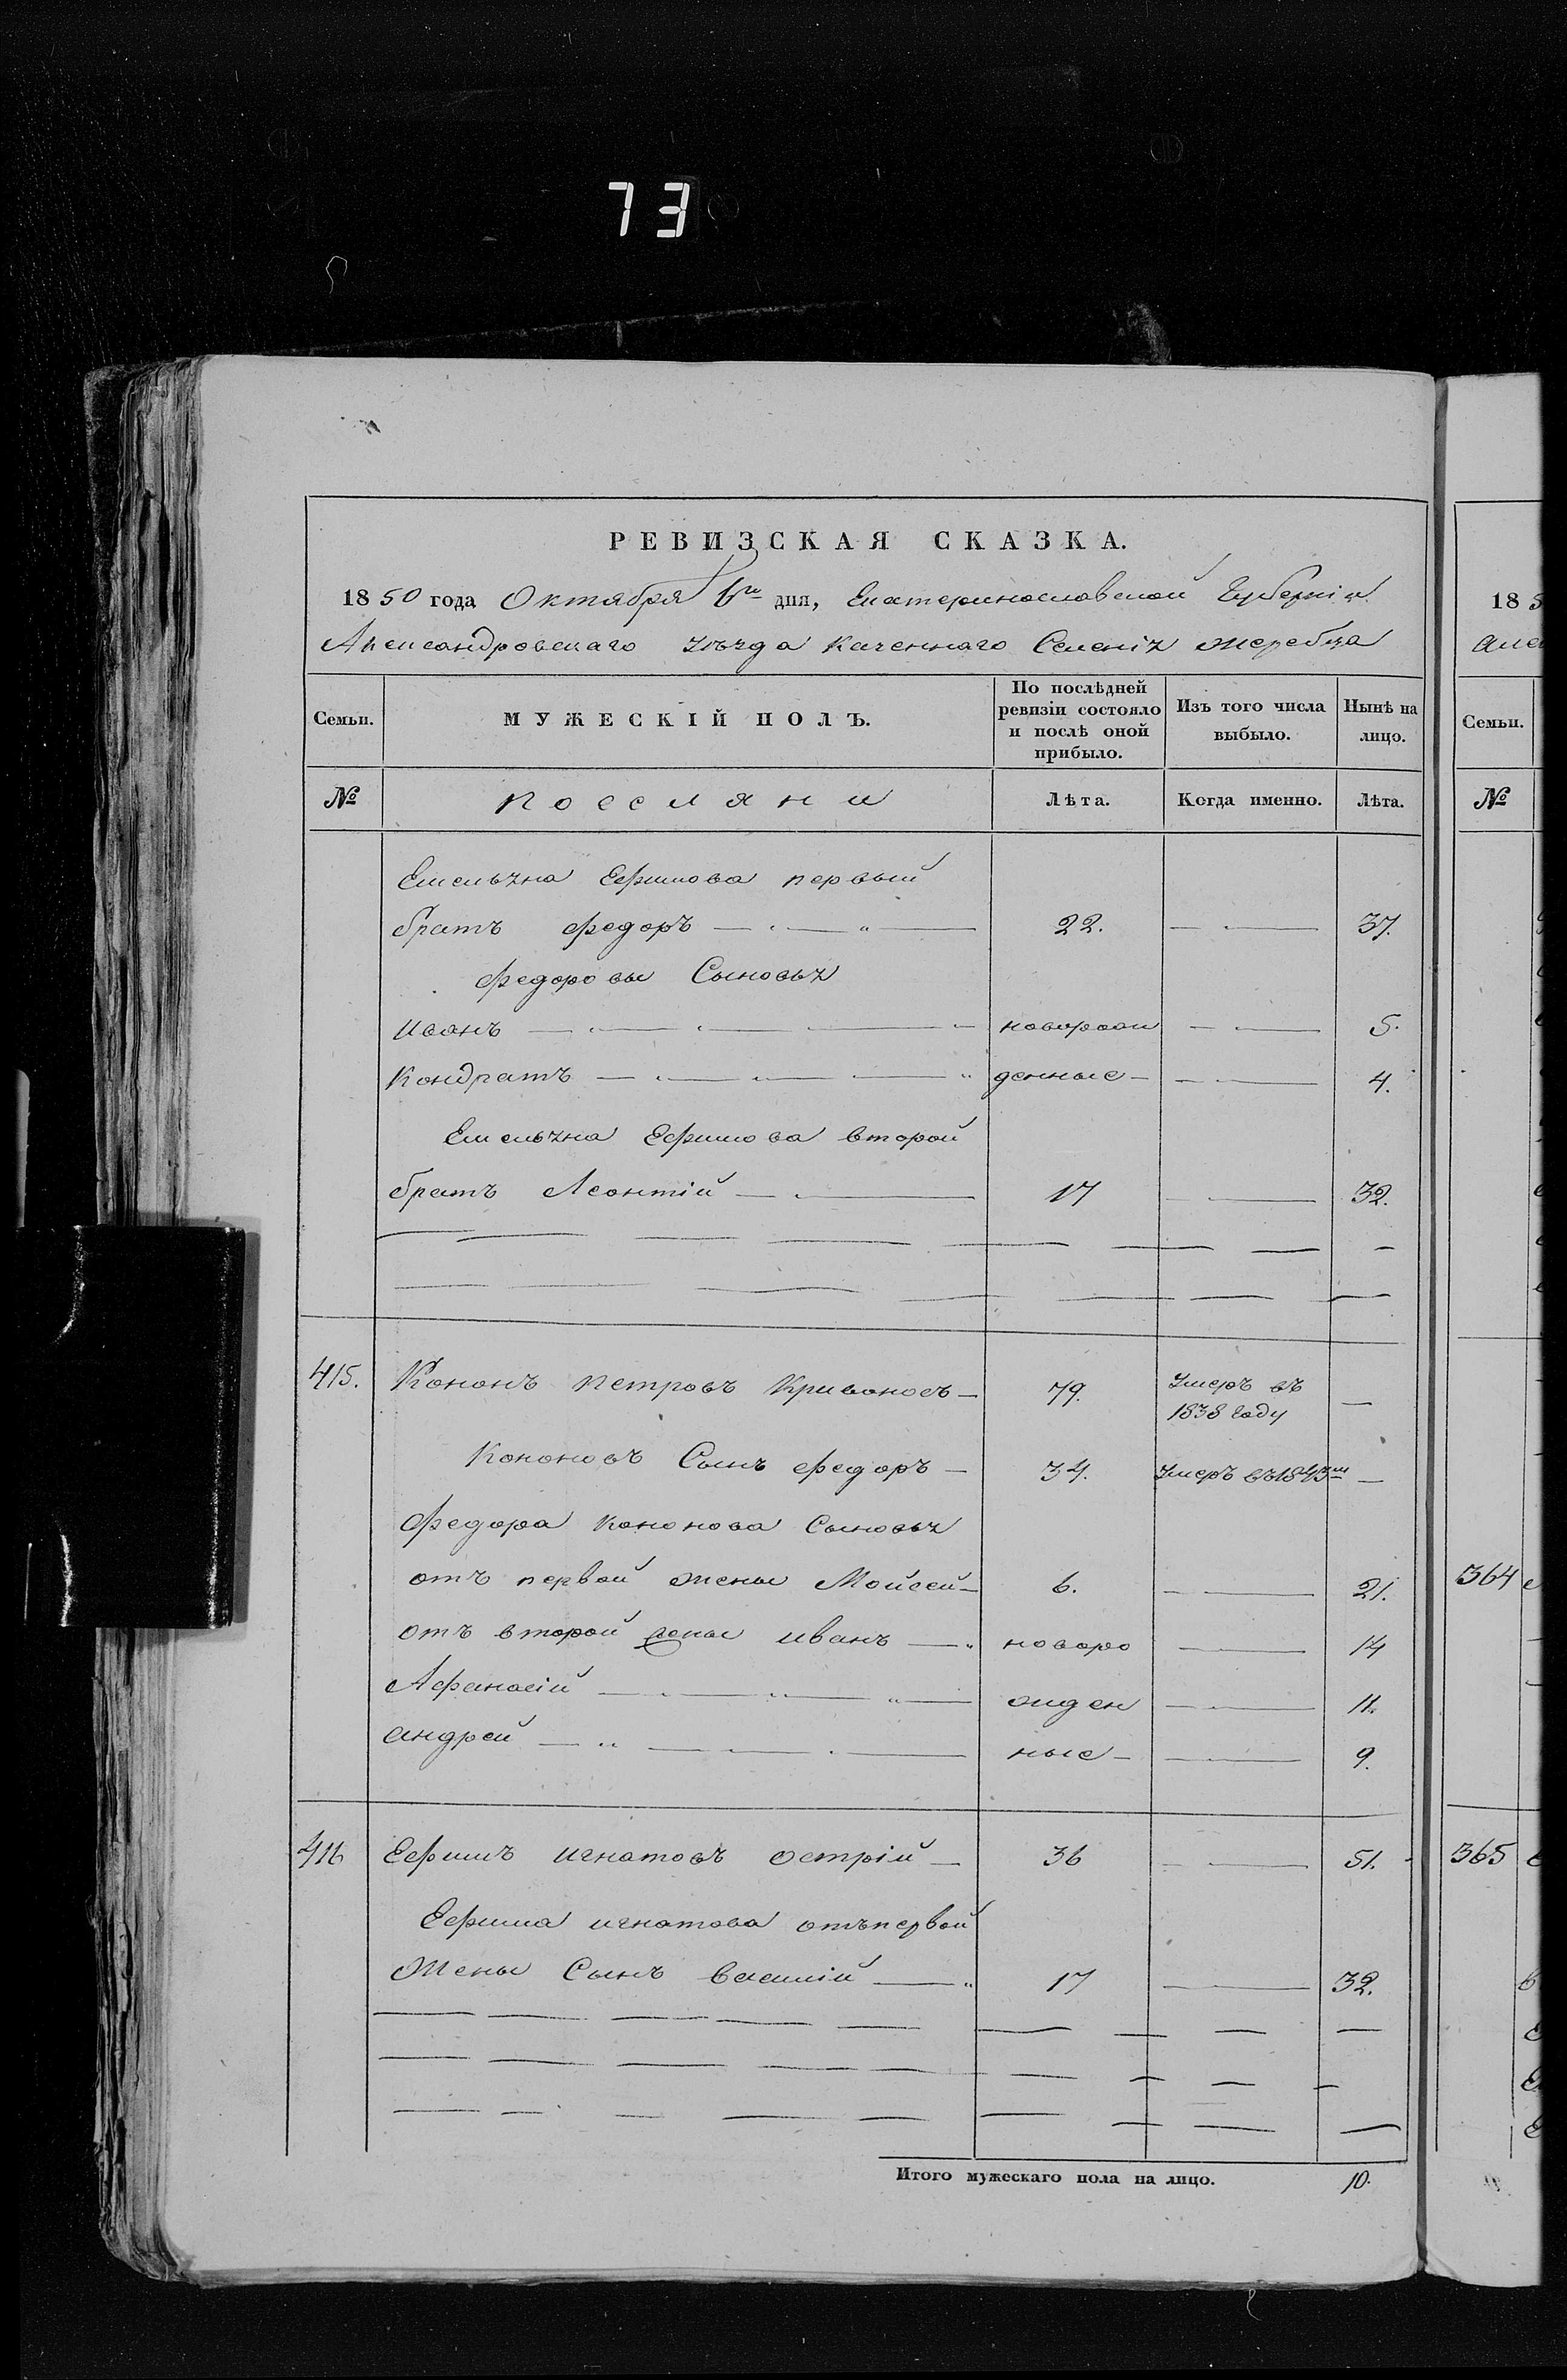 73
РЕВИЗСКАЯ СКАЗКА.
1850 года Октября 6го дня, Екатеринославской Губерніи
Александровскаго уѣзда Казеннаго Селенія Жеребца
Семьи. МУЖЕСКІЙ ПОЛЪ. По послѣдней ревизіи состояло и послѣ оной прибыло. Изъ того числа выбыло. Нынѣ на лицо.
№ поселяни Лѣта. Когда именно. Лѣта.
Емельяна Ефимова первый
братъ Федоръ 22. 37.
Федоровы Сыновья
Иванъ новорож 5.
Кондратъ денные 4.
Емельяна Ефимова второй
братъ Леонтій 17 32.
415. Кононъ Петровъ Кривоносъ 79. Умеръ въ 1838 году
Кононовъ Сынъ Федоръ 34. Умеръ въ 1843м
Федора Кононова Сыновья
отъ первой жены Мойсей 6. 21.
отъ второй жены Иванъ новоро 14
Афанасій жден 11.
Андрей ные 9.
416 Ефимъ Игнатовъ Острій 36 51.
Ефима Игнатова отъ первой
Жены Сынъ Василій 17 32.
Итого мужескаго пола на лицо. 10.
18 5
Семьи.
№
364
365